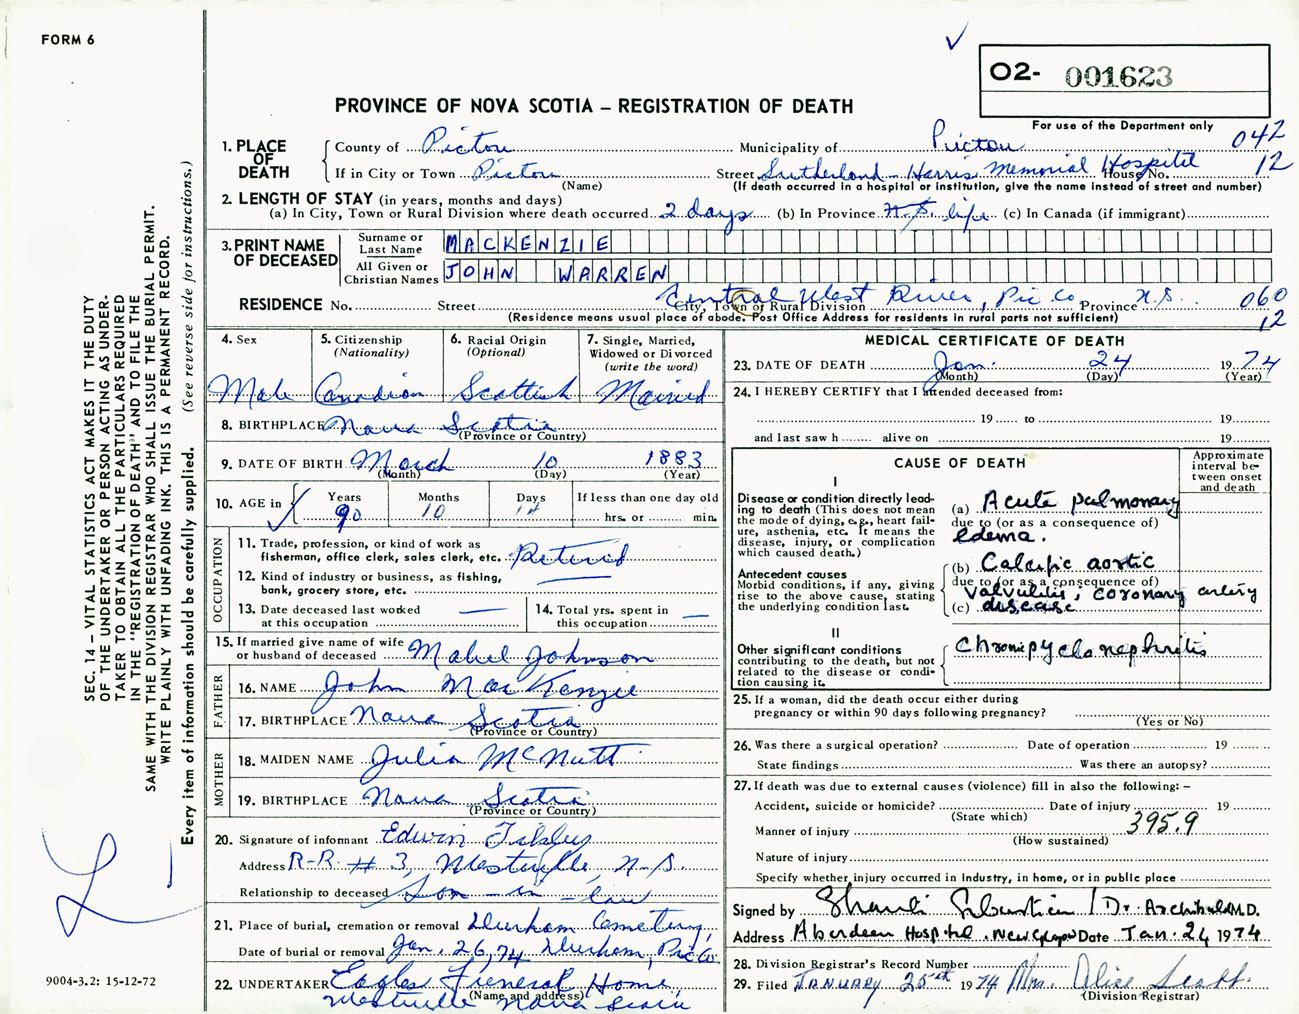 FORM 6
O2- 001623
PROVINCE OF NOVA SCOTIA – REGISTRATION OF DEATH
For use of the Department only
042
12
1. PLACE OF DEATH
County of Pictou Municipality of Pictou
If in City or Town Pictou Street Sutherland - Harris Memorial Hospital House No.
(Name) (If death occurred in a hospital or institution, give the name instead of street and number)
2. LENGTH OF STAY (in years, months and days)
(a) In City, Town or Rural Division where death occurred 2 days (b) In Province N.S. life (c) In Canada (if immigrant)
3. PRINT NAME OF DECEASED
Surname or Last Name MACKENZIE
All Given or Christian Names JOHN WARREN
RESIDENCE No. Street Central West River, Pic Co City, Town or Rural Division Province N.S. 060
(Residence means usual place of abode. Post Office Address for residents in rural parts not sufficient) 12
4. Sex
Male
5. Citizenship (Nationality)
Canadian
6. Racial Origin (Optional)
Scottish
7. Single, Married, Widowed or Divorced (write the word)
Married
8. BIRTHPLACE Nova Scotia
(Province or Country)
9. DATE OF BIRTH March 10 1883
(Month) (Day) (Year)
10. AGE in Years Months Days If less than one day old
90 10 14 hrs. or min.
OCCUPATION
11. Trade, profession, or kind of work as fisherman, office clerk, sales clerk, etc. Retired
12. Kind of industry or business, as fishing, bank, grocery store, etc.
13. Date deceased last worked at this occupation
14. Total yrs. spent in this occupation
15. If married give name of wife or husband of deceased Mabel Johnson
FATHER
16. NAME John MacKenzie
17. BIRTHPLACE Nova Scotia
(Province or Country)
MOTHER
18. MAIDEN NAME Julia McNutt
19. BIRTHPLACE Nova Scotia
(Province or Country)
20. Signature of informant Edwin
Address R-R. # 3, Westville, N-S.
Relationship to deceased Son - in - law
21. Place of burial, cremation or removal Durham Cemetery,
Date of burial or removal Jan. 26, 74 Durham, Pic Co.
22. UNDERTAKER Eagles Funeral Home,
(Name and address)
Westville Nova Scotia
MEDICAL CERTIFICATE OF DEATH
23. DATE OF DEATH Jan. 24 1974
(Month) (Day) (Year)
24. I HEREBY CERTIFY that I attended deceased from:
19 to 19
and last saw h alive on 19
CAUSE OF DEATH
Approximate interval between onset and death
I
Disease or condition directly leading to death (This does not mean the mode of dying, e.g., heart failure, asthenia, etc. It means the disease, injury, or complication which caused death.)
(a) Acute pulmonary
due to (or as a consequence of)
edema.
Antecedent causes
Morbid conditions, if any, giving rise to the above cause, stating the underlying condition last.
(b) Calcific aortic
due to (or as a consequence of)
valvulitis; coronary artery
(c) disease
II
Other significant conditions contributing to the death, but not related to the disease or condition causing it.
Chronic pyelonephritis
25. If a woman, did the death occur either during pregnancy or within 90 days following pregnancy?
(Yes or No)
26. Was there a surgical operation? Date of operation 19
State findings Was there an autopsy?
27. If death was due to external causes (violence) fill in also the following: –
Accident, suicide or homicide? Date of injury 19
(State which)
395.9
Manner of injury
(How sustained)
Nature of injury
Specify whether injury occurred in industry, in home, or in public place
Signed by / Dr. Archibald M.D.
Address Aberdeen Hospital, New Glasgow Date Jan. 24 1974
28. Division Registrar's Record Number
29. Filed JANUARY 25th 1974 Mrs. Alice Scott.
(Division Registrar)
SEC. 14 – VITAL STATISTICS ACT MAKES IT THE DUTY
OF THE UNDERTAKER OR PERSON ACTING AS UNDER-
TAKER TO OBTAIN ALL THE PARTICULARS REQUIRED
IN THE "REGISTRATION OF DEATH" AND TO FILE THE
SAME WITH THE DIVISION REGISTRAR WHO SHALL ISSUE THE BURIAL PERMIT.
WRITE PLAINLY WITH UNFADING INK. THIS IS A PERMANENT RECORD.
Every item of information should be carefully supplied. (See reverse side for instructions.)
9004-3.2: 15-12-72